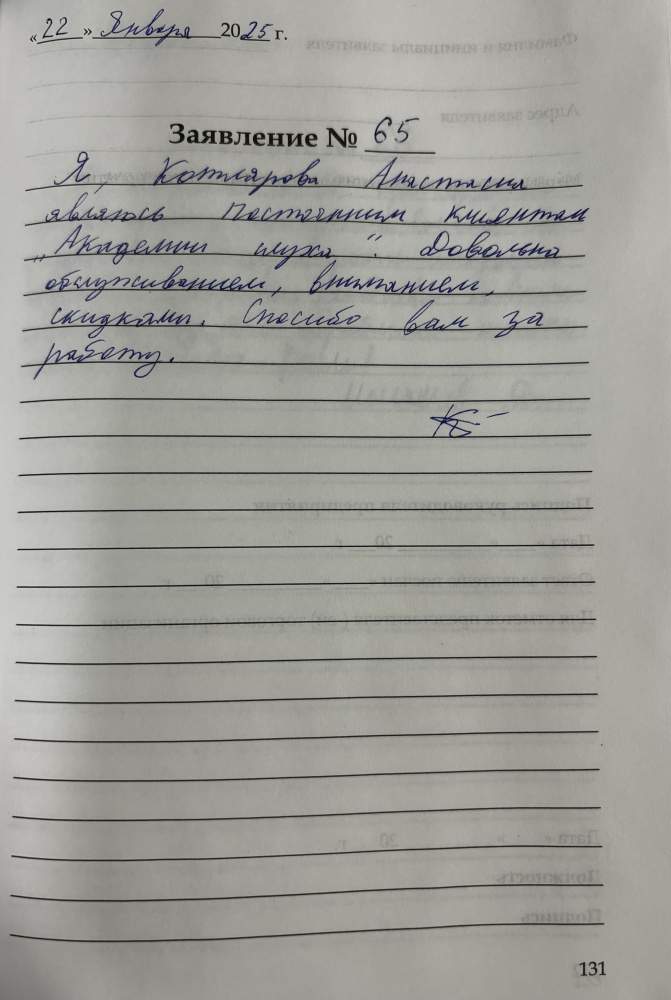 «22» Января 2025 г.
Заявление № 65
Я, Котлярова Анастасия
являюсь постоянным клиентом
„Академии слуха“. Довольна
обслуживанием, вниманием,
скидками. Спасибо вам за
работу.
131